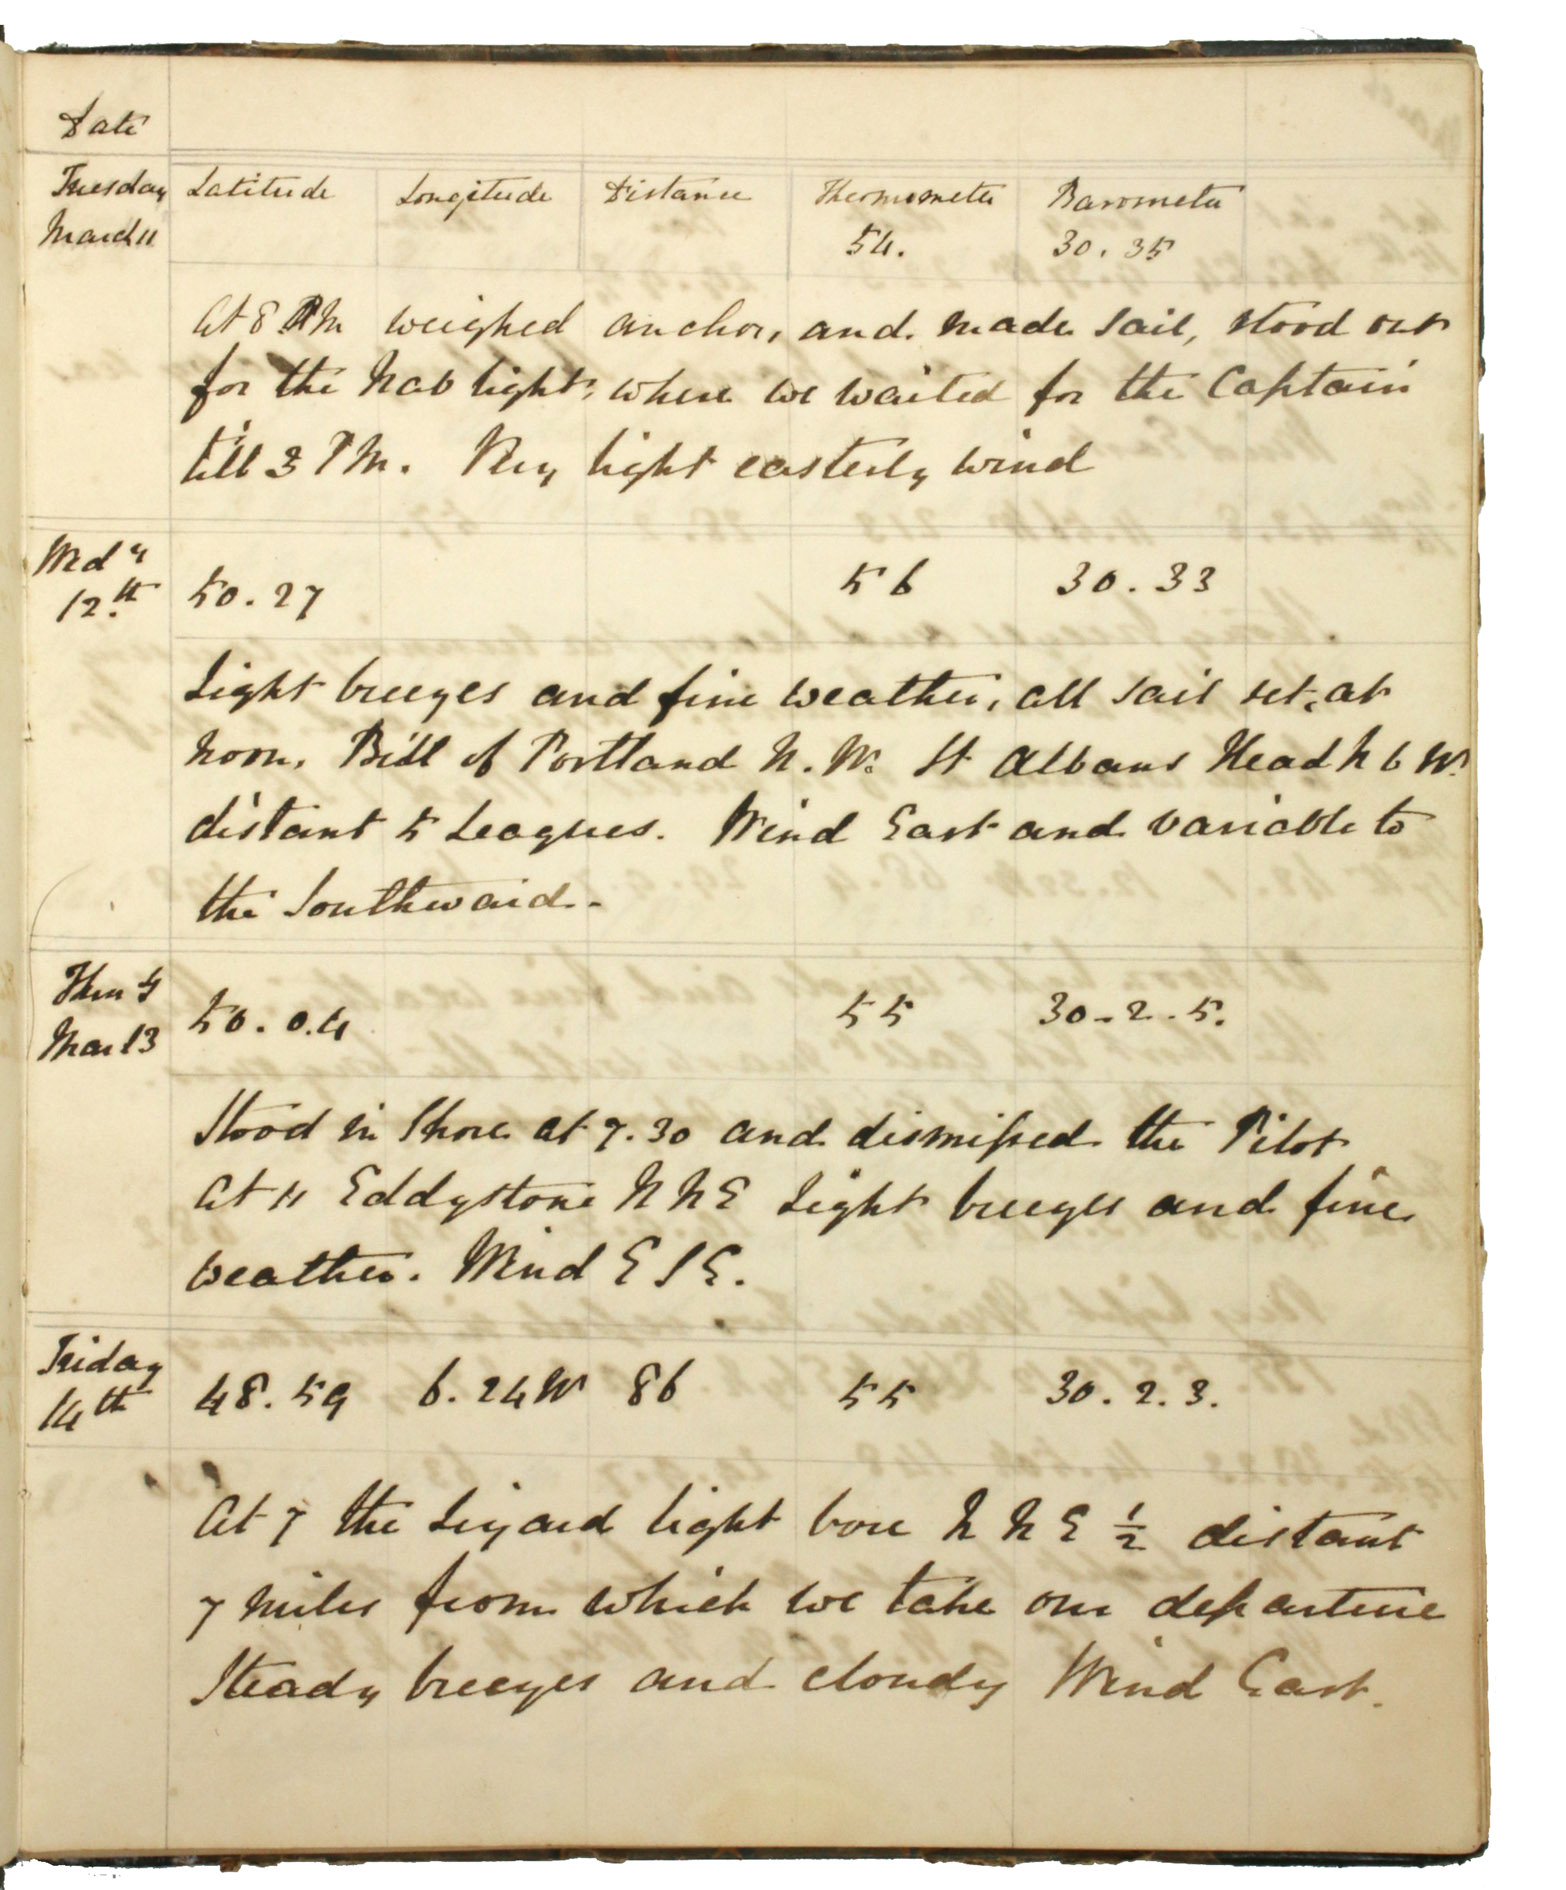 Date
Tuesday Latitude Longitude Distance Thermometer Barometer
March 11 54. 30.35
At 8 AM weighed anchor, and made sail, stood out
for the Nab light, where we waited for the Captain
till 3 PM. Very light easterly wind
Wedy
12.th 50.27 56 30.33
Light breezes and fine weather, all sail set, at
noon, Bill of Portland N.W. St Albans Head N b W.
distant 5 Leagues. Wind East and variable to
the Southward.
Thury
Mar 13 50.0.4 55 30.2.5.
Stood in Shore at 7.30 and dismissed the Pilot
At 11 Eddystone N N E Light breezes and fine
weather. Wind E S E.
Friday
14th 48.59 6.24W 86 55 30.2.3.
At 7 the Lizard light bore N N E ½ distant
7 miles from which we take our departure
Steady breezes and cloudy Wind East.